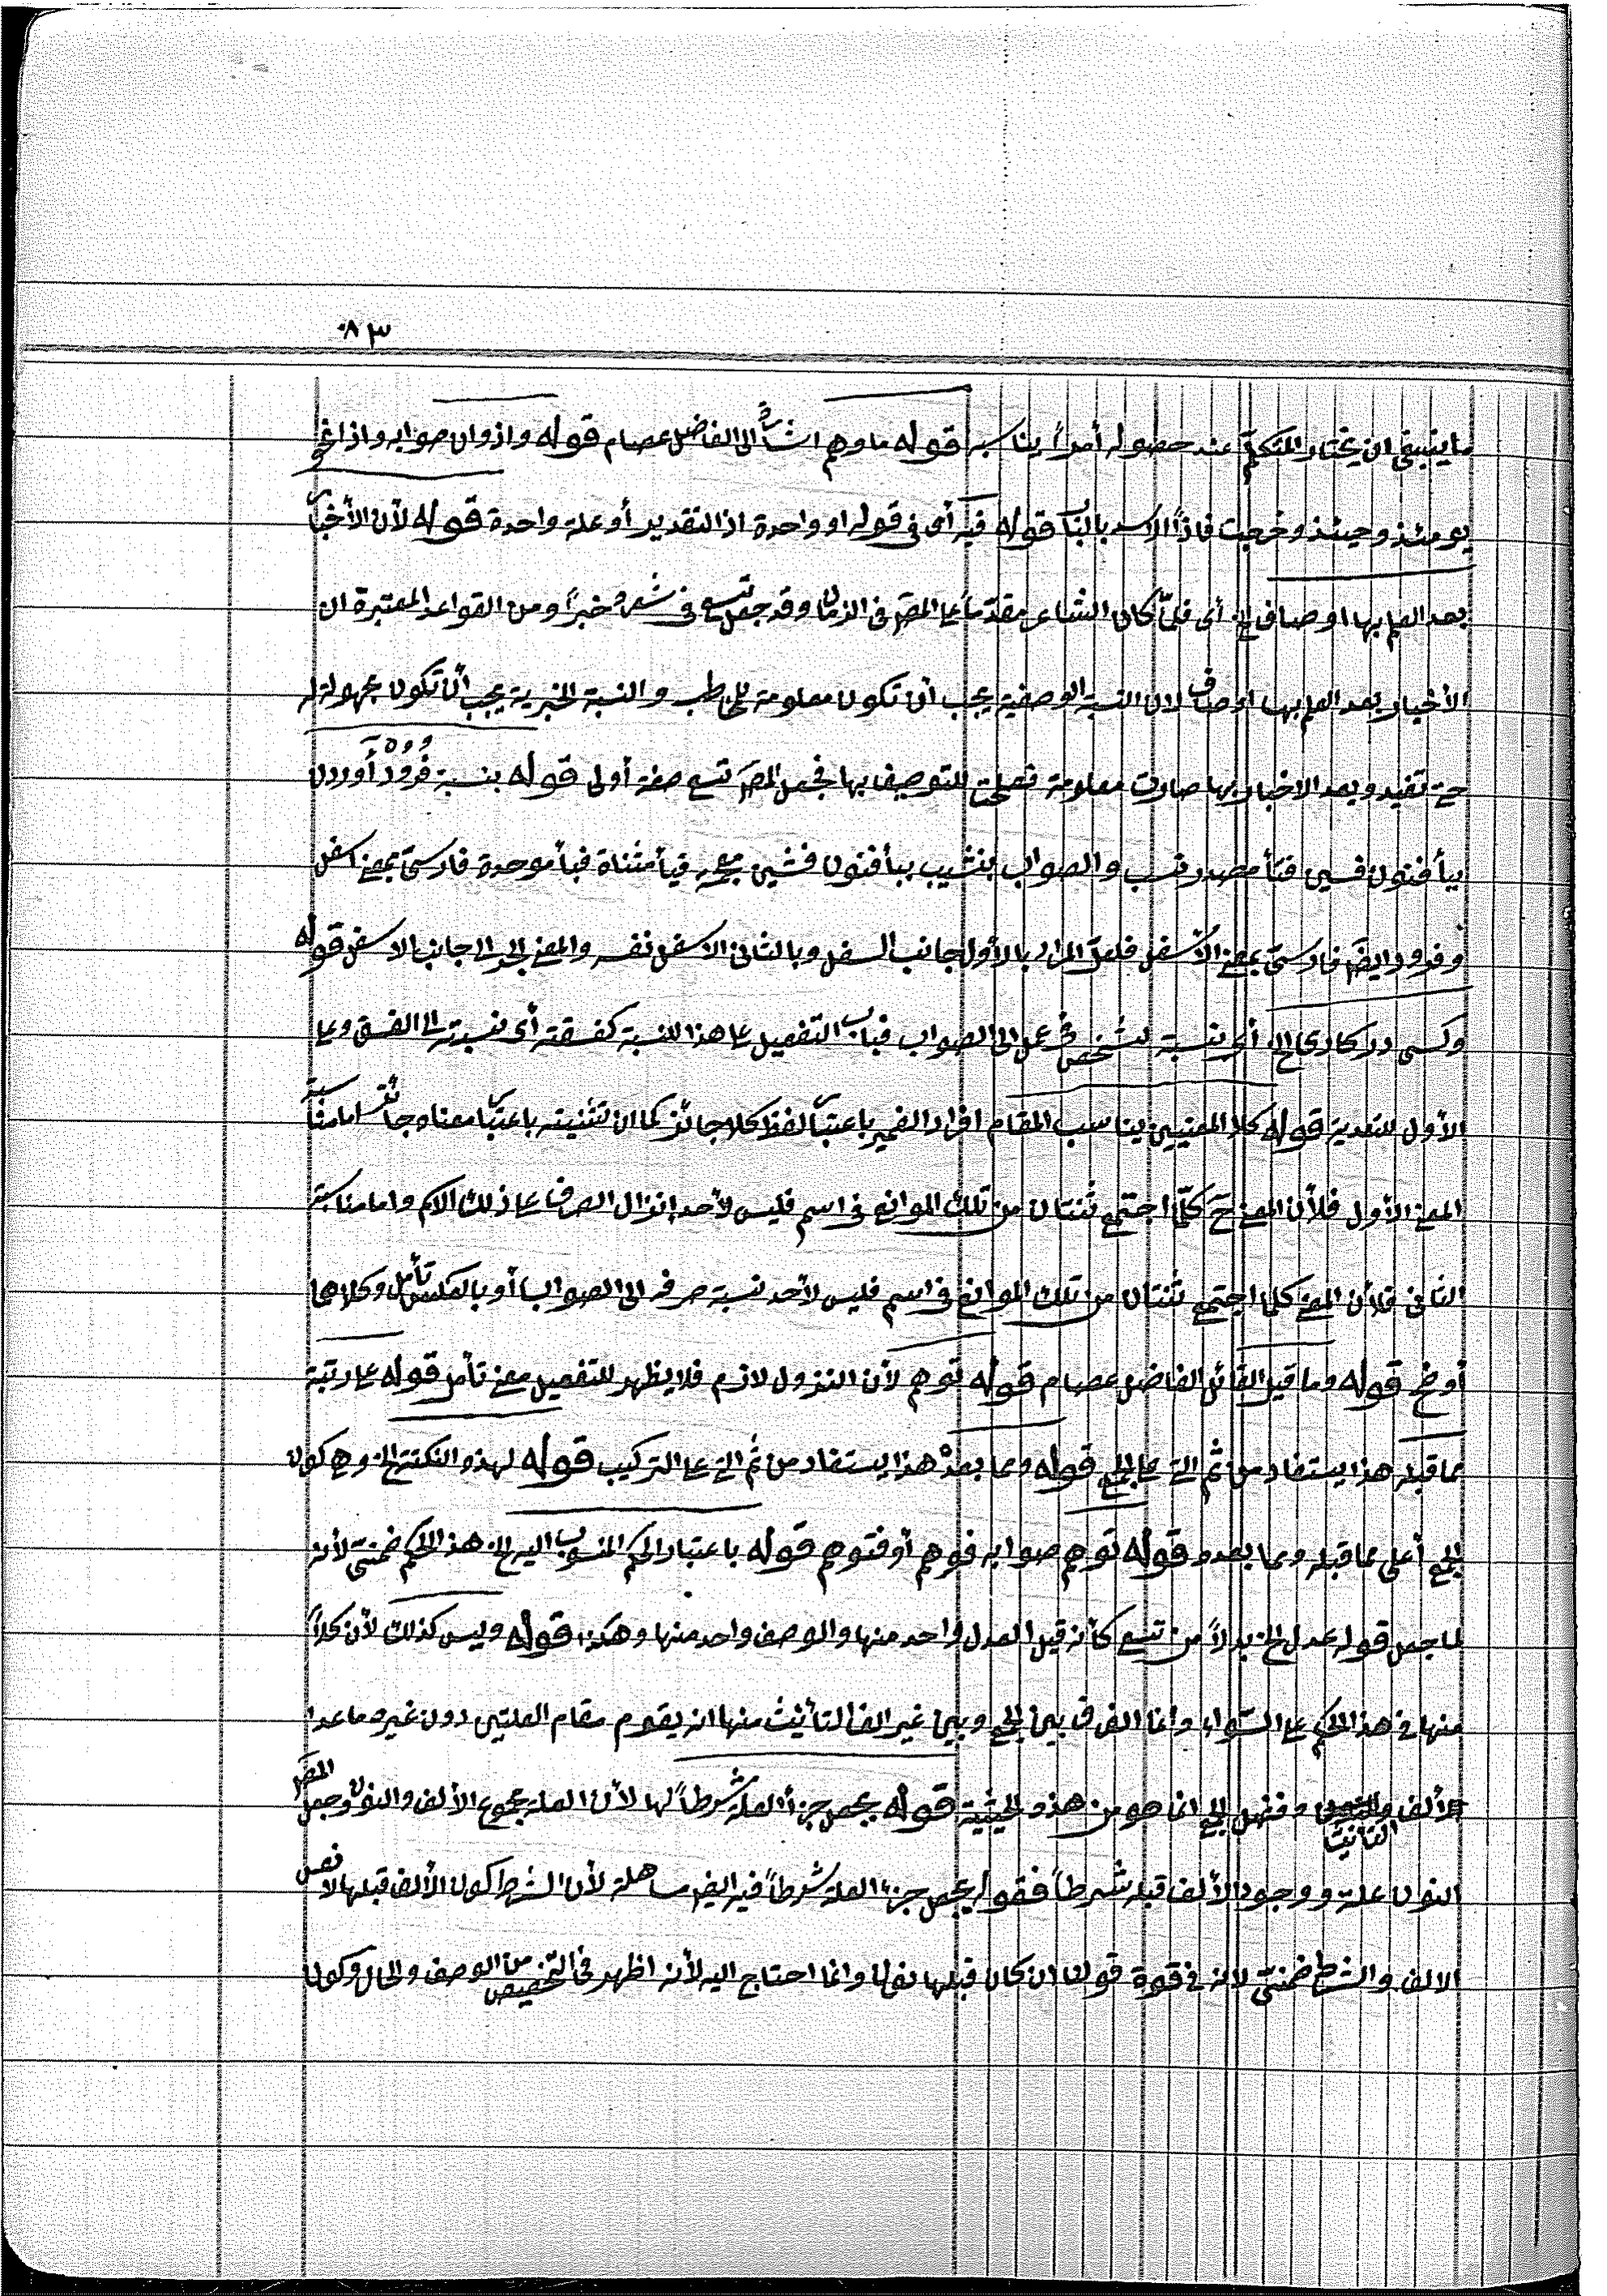 ٠٨٣
ما ينبغي ان يختار المتكلم عند حصوله أمراً يناسبه قوله ما وهم اشأ الى الفاضل عصام قوله واذ وان صوابه واذا
يومئذ وحينئذ وخرجت فاذا بالبا قوله فيه أى فى قوله او واحدة اذ التقدير أو علة واحدة قوله لأن الأخبا
بعد العلم بها اوصاف الخ أى فلما كان الشاعر مقدماً عا المص فى الزمان وقد جعل تسع فى شعره خبراً ومن القواعد المعتبرة ان
الأخبار بعد العلم بها اوصاف لان النسبة الوصفية يجب أن تكون معلومة للمخاطب والنسبة الخبرية يجب أن تكون مجهولة له
حتى تفيد وبعد الاخبار بها صارت معلومة فصلح للتوصيف بها فجعل المص تسع صفة أولى قوله بنسبة فُرُودْ أَوردن
بيأ فنون فسين فتأ مصدر نسب والصواب بنشيب ببأ فنون فشين معجمة فيأ مثناة فبأ موحدة فارسى بمعنى اسفل
وفرود ايضَ فارسى بمعنى الأسفل فلعل المراد بالأول جانب السفل وبالثانى الاسفل نفسه والمعنى الى جانب الاسفل قوله
وكسى در كارى الخ أى بنسبة شخص فى عمل الى الصواب فباب التفعيل عا هذا للنسبة كفسقته أى نسبته الى الفسق وعا
الأول للتعدية قوله كلا المعنيين يناسب المقام افراد الضمير باعتبا لفظ كلا جائز كما ان تثنيته باعتبا معناه جائز اما مناسبة
المعنى الأول فلأن المعنى حَ كلّما اجتمع ثنتان من تلك الموانع فى اسم فليس لأحد انزال الصرف عا ذلك الاسم واما مناسبة
الثانى فلأن المعنى كلما اجتمع ثنتان من تلك الموانع فى اسم فليس لأحد نسبة صرفه الى الصواب أو بالعكس تأمل وكلاهما
أوضح قوله وما قيل القائل الفاضل عصام قوله توهم لأن النزول لازم فلا يظهر للتفعيل معنى تأمل قوله عا رتبة
مما قبله هذا يستفاد من ثم التى عا الجمع قوله ومما بعده هذا يستفاد من ثم التى عا التركيب قوله لهذه النكتة الخ وهى كون
الجمع أعلى مما قبله ومما بعده قوله توهم صوابه فوهم أو فتوهم قوله باعتبار الحكم المنسوب اليه الخ هذا الحكم ضمنىّ لأنه
لما جعل قوله عدل الخ بدلاً من تسع كأنه قيل العدل واحد منها والوصف واحد منها وهكذا قوله وليس كذلك لأن كلاً
منها فى هذا الحكم عا السّواء وانما الفرق بين الجمع وبين غير الف التأنيث منها انه يقوم مقام العلتين دون غيره ما عدا
ألف التانيث وفضل الجمع انما هو من هذه الحيثية قوله بجعل جزأ العلة شرطاً لها لأن العلة مجموع الألف والنون وجعل المصَ
النون علة ووجود الألف قبله شرطاً فقوله بجعل جزء العلة شرطاً فيه ايضَ مساهلة لأن الشرط كون الألف قبلها لا نفس
الالف والشرط ضمنىّ لانه فى قوة قولنا ان كان قبلها الف وانما احتاج اليه لأنه اظهر فى التخصيص من الوصف والحال وكون